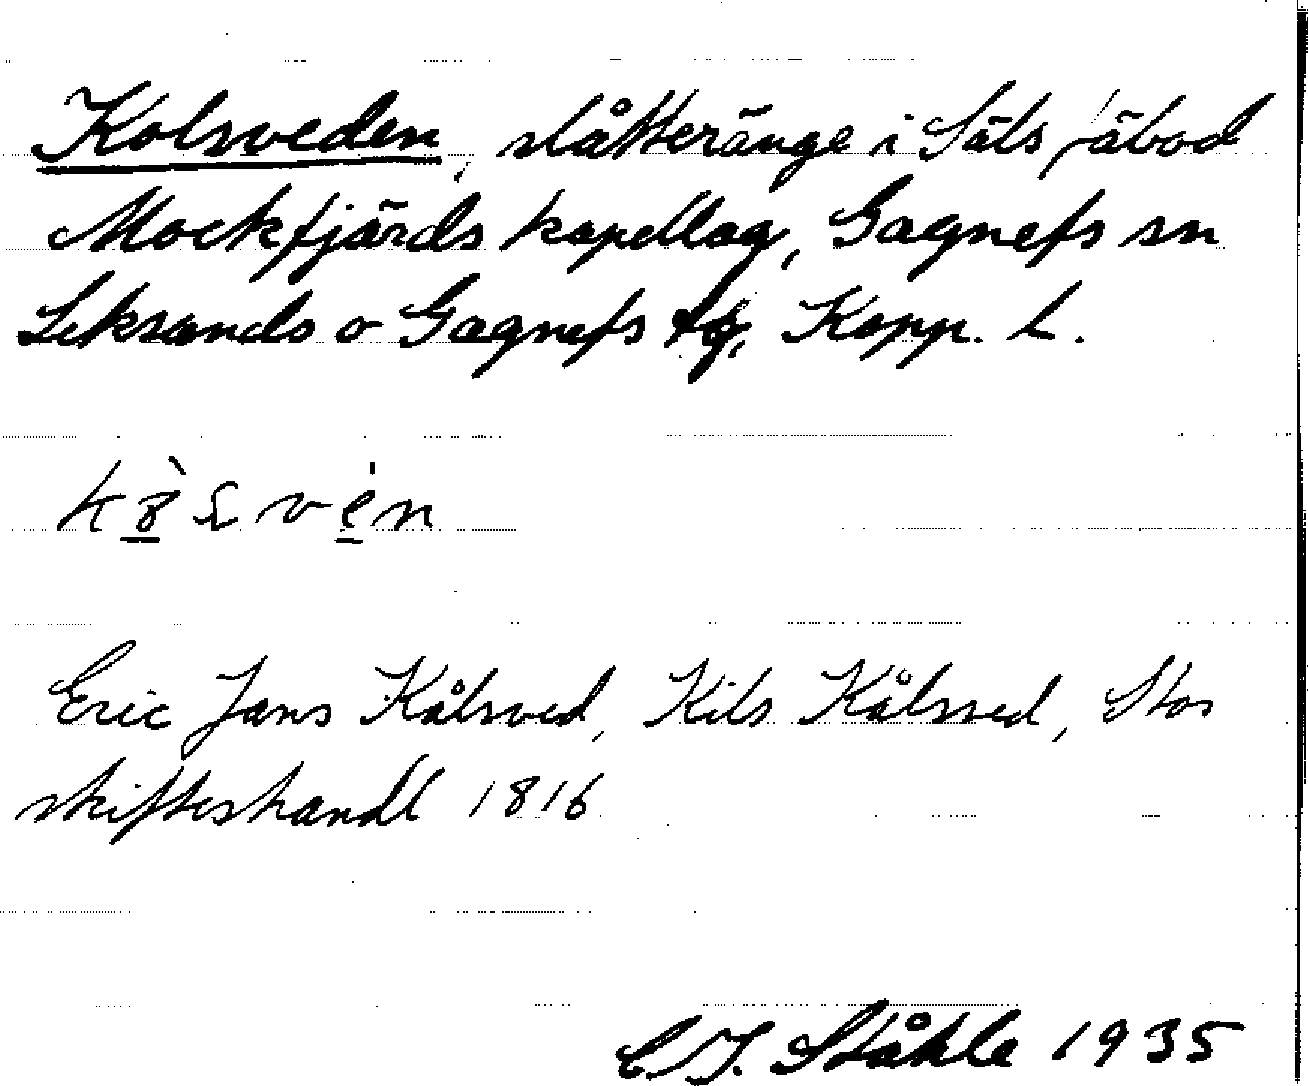 Kolsveden, slåtteränge i Säls fäbod
Mockfjärds kapellag, Gagnefs sn
Leksands o Gagnefs tg, Kopp. L.
Eric Jans Kålsved, Kils Kålsved, Stor
skifteshandl 1816
C.I. Ståhle 1935